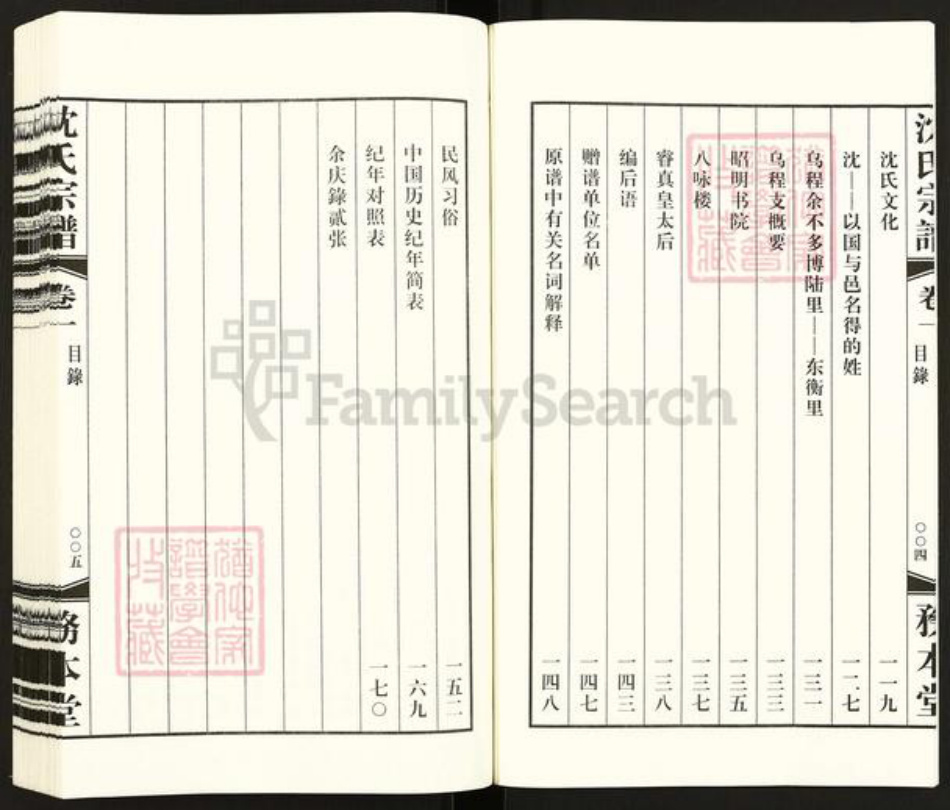 沈氏宗譜
卷一
目錄
〇〇四
務本堂
沈氏文化 一一九
沈——以国与邑名得的姓 一二七
乌程余不乡博陆里——东衡里 一三一
乌程支概要 一三三
昭明书院 一三五
八咏楼 一三七
睿真皇太后 一三八
编后语 一四三
赠谱单位名单 一四七
原谱中有关名词解释 一四八
民风习俗 一五二
中国历史纪年简表 一六九
纪年对照表 一七〇
余庆錄贰张
沈氏宗譜
卷一
目錄
〇〇五
務本堂
FamilySearch